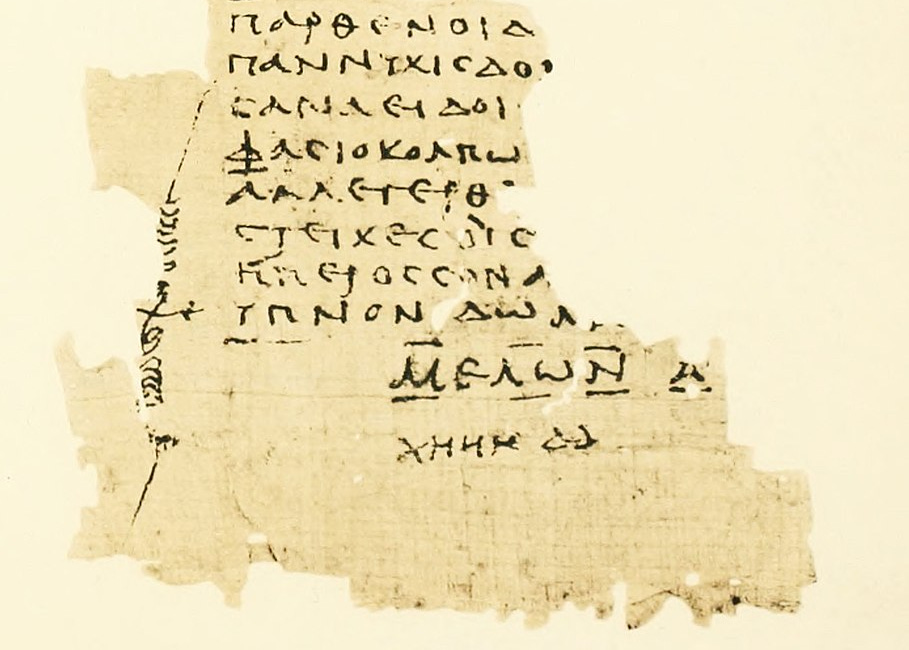 ΠΑΡΘΕΝΟΙΔ
ΠΑΝΝΥΧΙϹΔΟΙ
ϹΑΝΑΕΙΔΟΙ
ΦΑϹΙΟΚΟΛΠΩ
ΑΛΛΕΓΕΡΘ
ϹΤΕΙΧΕϹΟΙϹ
ΗΠΕΡΟϹϹΟΝΑ
ΥΠΝΟΝ ΔΩΜ
ΜΕΛΩΝ Α
ΧΗΗΗΔΔ